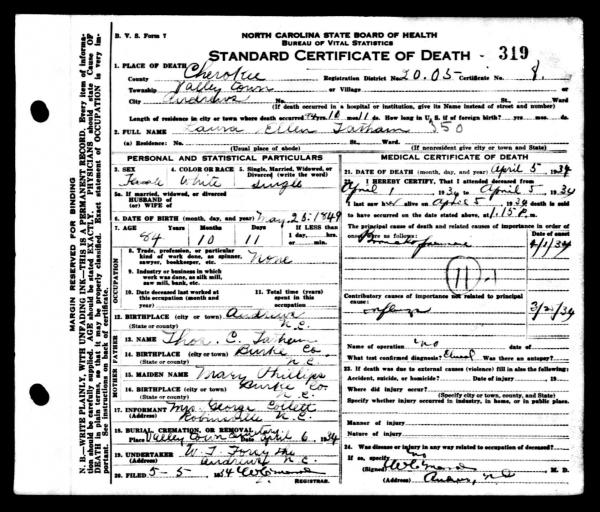 B. V. S. Form 7
NORTH CAROLINA STATE BOARD OF HEALTH
BUREAU OF VITAL STATISTICS
STANDARD CERTIFICATE OF DEATH - 319
1. PLACE OF DEATH
County Cherokee Registration District No. 20.05 Certificate No. 8
Township Valley Town or Village
City Andrews No. St. Ward
(If death occurred in a hospital or institution, give its NAME instead of street and number)
Length of residence in city or town where death occurred yrs. 10 mos. 11 ds. How long in U. S. if of foreign birth? yrs. mos. ds.
2. FULL NAME Laura Ellen Tatham 350
(a) Residence: No. St., Ward
(Usual place of abode) (If nonresident give city or town and State)
PERSONAL AND STATISTICAL PARTICULARS
3. SEX Female
4. COLOR OR RACE White
5. Single, Married, Widowed, or Divorced (write the word) single
5a. If married, widowed, or divorced
HUSBAND of
(or) WIFE of
6. DATE OF BIRTH (month, day, and year) May 25, 1849
7. AGE Years Months Days If LESS than
84 10 11 1 day, hrs.
or min.
OCCUPATION
8. Trade, profession, or particular
kind of work done, as spinner,
sawyer, bookkeeper, etc. None
9. Industry or business in which
work was done, as silk mill,
saw mill, bank, etc.
10. Date deceased last worked at
this occupation (month and
year)
11. Total time (years)
spent in this
occupation
12. BIRTHPLACE (city or town) Andrews
(State or county) N.C.
FATHER
13. NAME Thos. C. Tatham
14. BIRTHPLACE (city or town) Burke Co
(State or county) N.C.
MOTHER
15. MAIDEN NAME Phillips
16. BIRTHPLACE (city or town) Burke Co
(State or county) N.C.
17. INFORMANT Mrs. George
(Address) N.C.
18. BURIAL, CREMATION, OR REMOVAL
Place Valley Town Date April 6, 1934
19. UNDERTAKER W. T.
(Address) Andrews N.C.
20. FILED 5-5 34
REGISTRAR.
MEDICAL CERTIFICATE OF DEATH
21. DATE OF DEATH (month, day, and year) April 5 1934
22. I HEREBY CERTIFY, That I attended deceased from
April 1934 to April 5, 1934
I last saw h alive on April 5, 1934 death is said
to have occurred on the date stated above, at 1.15 P. m.
The principal cause of death and related causes of importance in order of
onset were as follows: Date of onset
4/1/34
11-1
Contributory causes of importance not related to principal
cause:
3/21/34
Name of operation no date of
What test confirmed diagnosis? Clinical Was there an autopsy?
23. If death was due to external causes (violence) fill in also the following:
Accident, suicide, or homicide? Date of injury 19
Where did injury occur?
(Specify city or town, county, and State)
Specify whether injury occurred in industry, in home, or in public place.
Manner of injury
Nature of injury
24. Was disease or injury in any way related to occupation of deceased?
If so, specify no
(Signed) M. D.
(Address) Andrews, N.C.
MARGIN RESERVED FOR BINDING
N. B.—WRITE PLAINLY, WITH UNFADING INK—THIS IS A PERMANENT RECORD. Every item of information should be carefully supplied. AGE should be stated EXACTLY. PHYSICIANS should state CAUSE OF DEATH in plain terms, so that it may be properly classified. Exact statement of OCCUPATION is very important. See instructions on back of certificate.